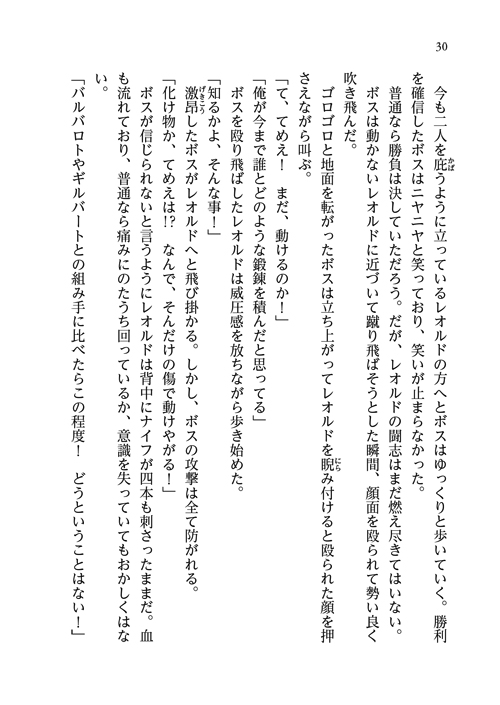 30
今も二人を庇うように立っているレオルドの方へとボスはゆっくりと歩いていく。勝利
を確信したボスはニヤニヤと笑っており、笑いが止まらなかった。
普通なら勝負は決していただろう。だが、レオルドの闘志はまだ燃え尽きてはいない。
ボスは動かないレオルドに近づいて蹴り飛ばそうとした瞬間、顔面を殴られて勢い良く
吹き飛んだ。
ゴロゴロと地面を転がったボスは立ち上がってレオルドを睨み付けると殴られた顔を押
さえながら叫ぶ。
「て、てめえ！　まだ、動けるのか！」
「俺が今まで誰とどのような鍛錬を積んだと思ってる」
ボスを殴り飛ばしたレオルドは威圧感を放ちながら歩き始めた。
「知るかよ、そんな事！」
激昂したボスがレオルドへと飛び掛かる。しかし、ボスの攻撃は全て防がれる。
「化け物か、てめえは!?　なんで、そんだけの傷で動けやがる！」
ボスが信じられないと言うようにレオルドは背中にナイフが四本も刺さったままだ。血
も流れており、普通なら痛みにのたうち回っているか、意識を失っていてもおかしくはな
い。
「バルバロトやギルバートとの組み手に比べたらこの程度！　どうということはない！」